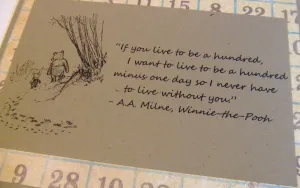 "If you live to be a hundred,
I want to live to be a hundred
minus one day so I never have
to live without you."
- A.A. Milne, Winnie-the-Pooh
9 28